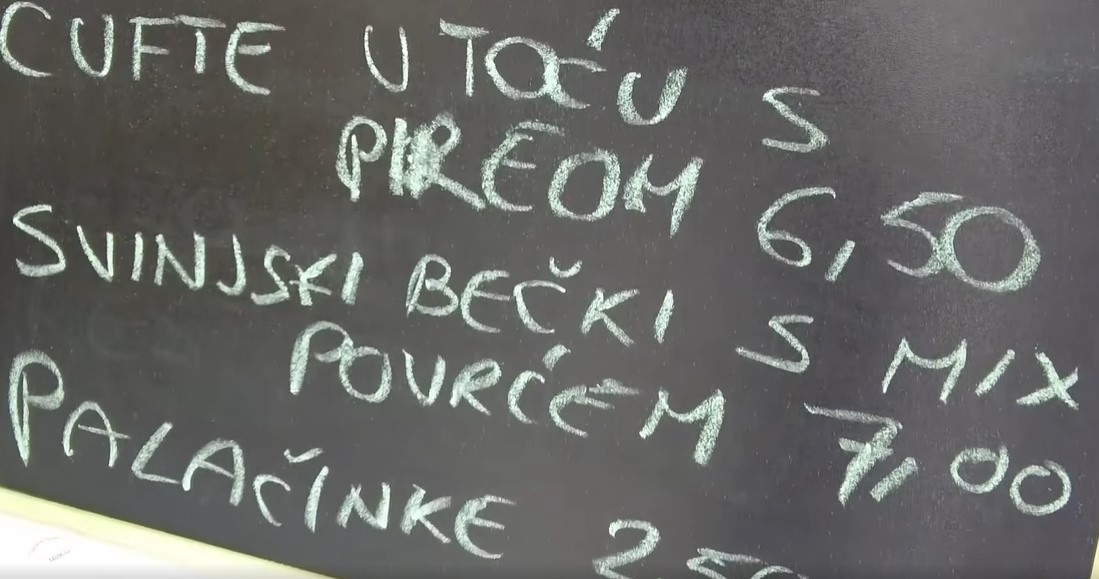 CUFTE U TOĆU S
PIREOM 6,50
SVINJSKI BEČKI S MIX
POVRĆEM 7,00
PALAČINKE 2,50